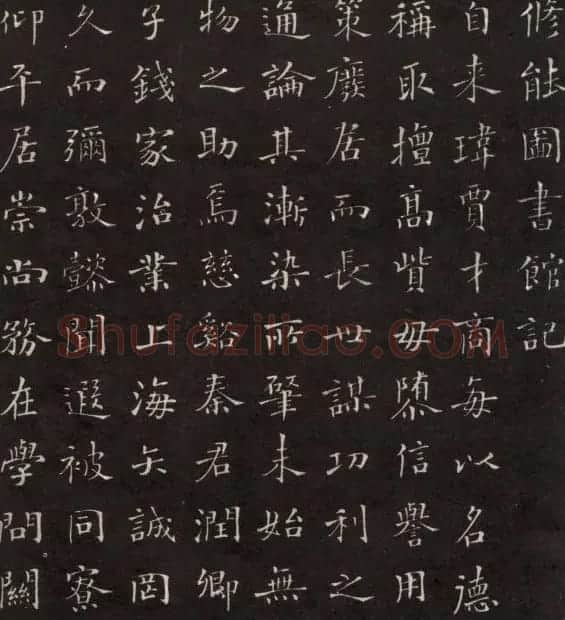 修能圖書館記
自来瑋賈才商每以名德
稱取擅高貲毋隳信譽用
策廢居而長世謀功利之
通論其漸染所肇未始無
物之助焉慈谿秦君潤卿
子錢家治業上海矢誠罔
久而彌敦懿聞遐被同寮
仰平居崇尚務在學問闢
Shufaziliao.COM